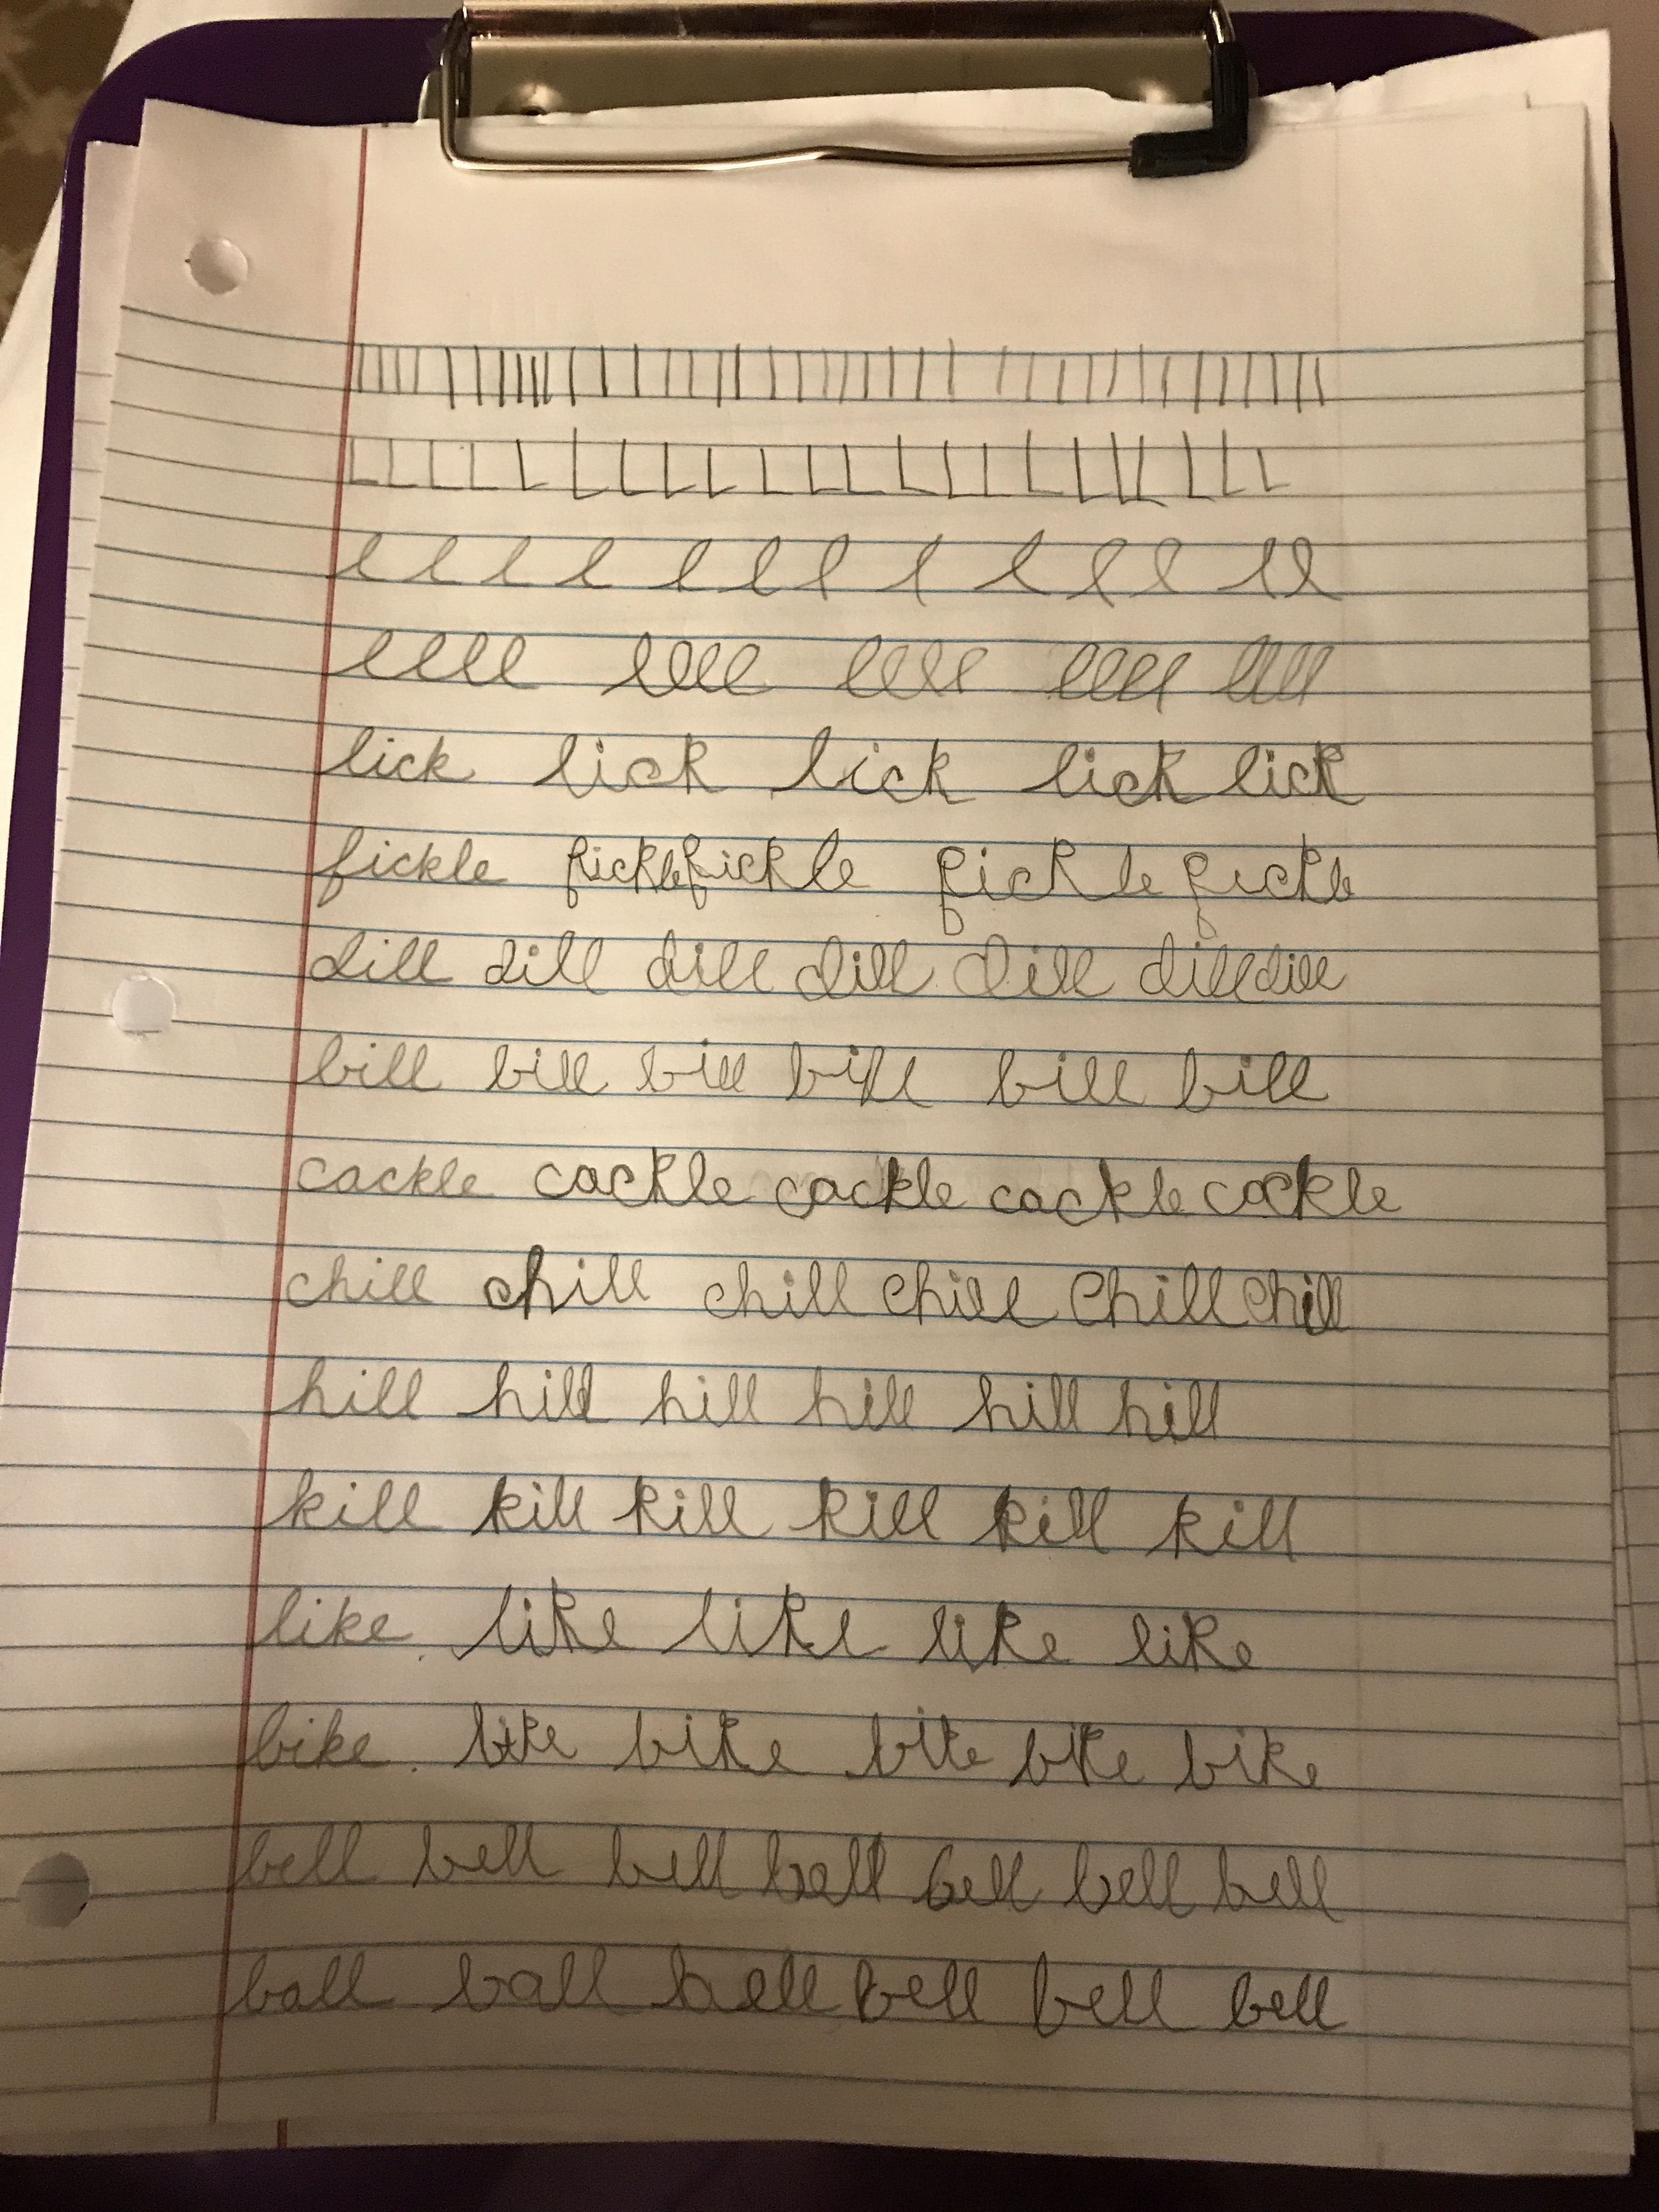 l l l l l l l l l l l l l
llll llll llll llll llll
lick lick lick lick lick
fickle fickle fickle fickle fickle
dill dill dill dill dill dill dill
bill bill bill bill bill bill
cackle cackle cackle cackle cackle
chill chill chill chill chill chill
hill hill hill hill hill hill
kill kill kill kill kill kill
like. like like like like
bike. bike bike bike bike bike
bell bell bell bell bell bell bell
ball ball bell bell bell bell